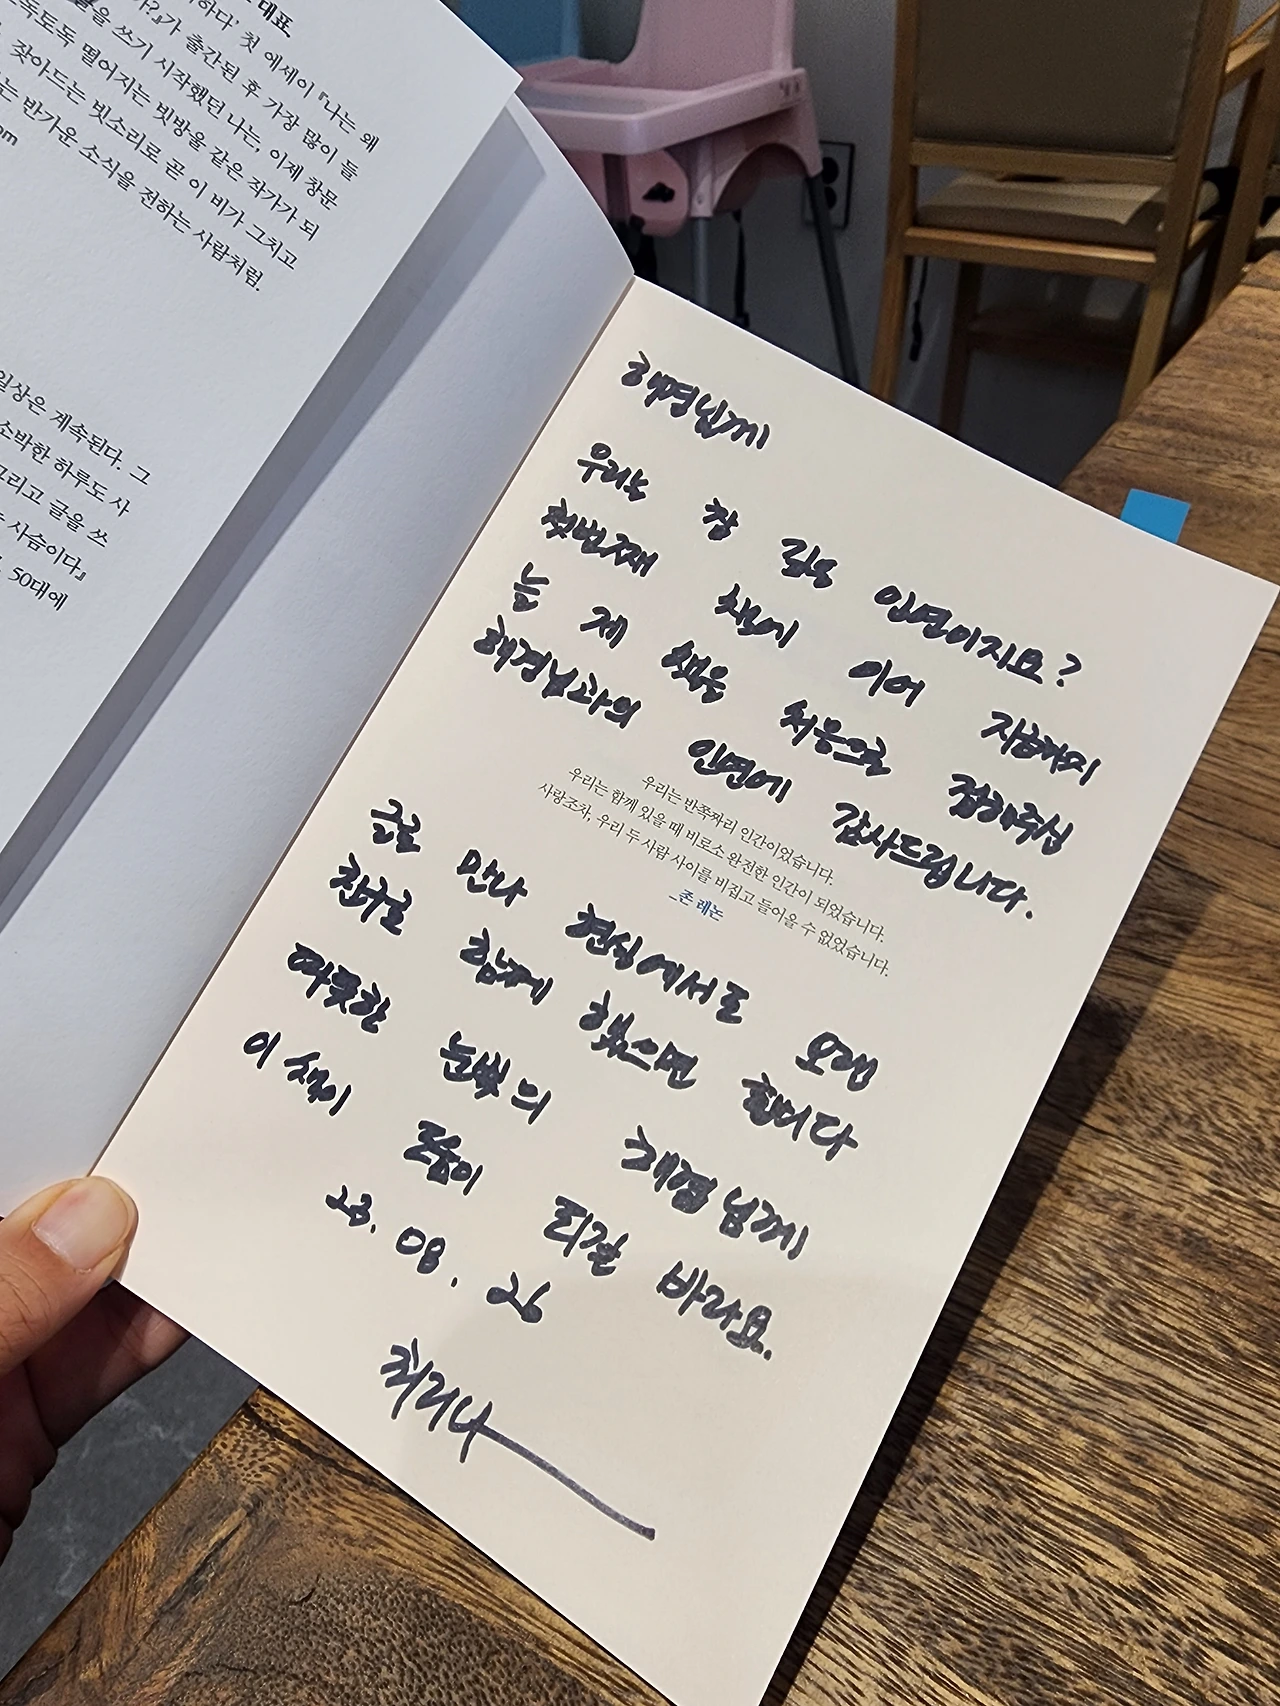 대표
하다’ 첫 에세이 『나는 왜
?』가 출간된 후 가장 많이 들
을 쓰기 시작했던 나는, 이제 창문
독토독 떨어지는 빗방울 같은 작가가 되
잦아드는 빗소리로 곧 이 비가 그치고
는 반가운 소식을 전하는 사람처럼.
om
일상은 계속된다. 그
소박한 하루도 사
그리고 글을 쓰
사슴이다』
50대에
혜경님께
우리는 참 깊은 인연이지요?
첫번째 책에 이어 지금까지
늘 제 책을 처음으로 접해주신
혜경님과의 인연에 감사드립니다.
우리는 반쪽짜리 인간이었습니다.
우리는 함께 있을 때 비로소 완전한 인간이 되었습니다.
사랑조차, 우리 두 사람 사이를 비집고 들어올 수 없었습니다.
_존 레논
글로 만나 현실에서도 오랜
친구로 함께 했으면 합니다
따뜻한 눈빛의 혜경님께
이 책이 도움이 되길 바라요.
23. 08. 26